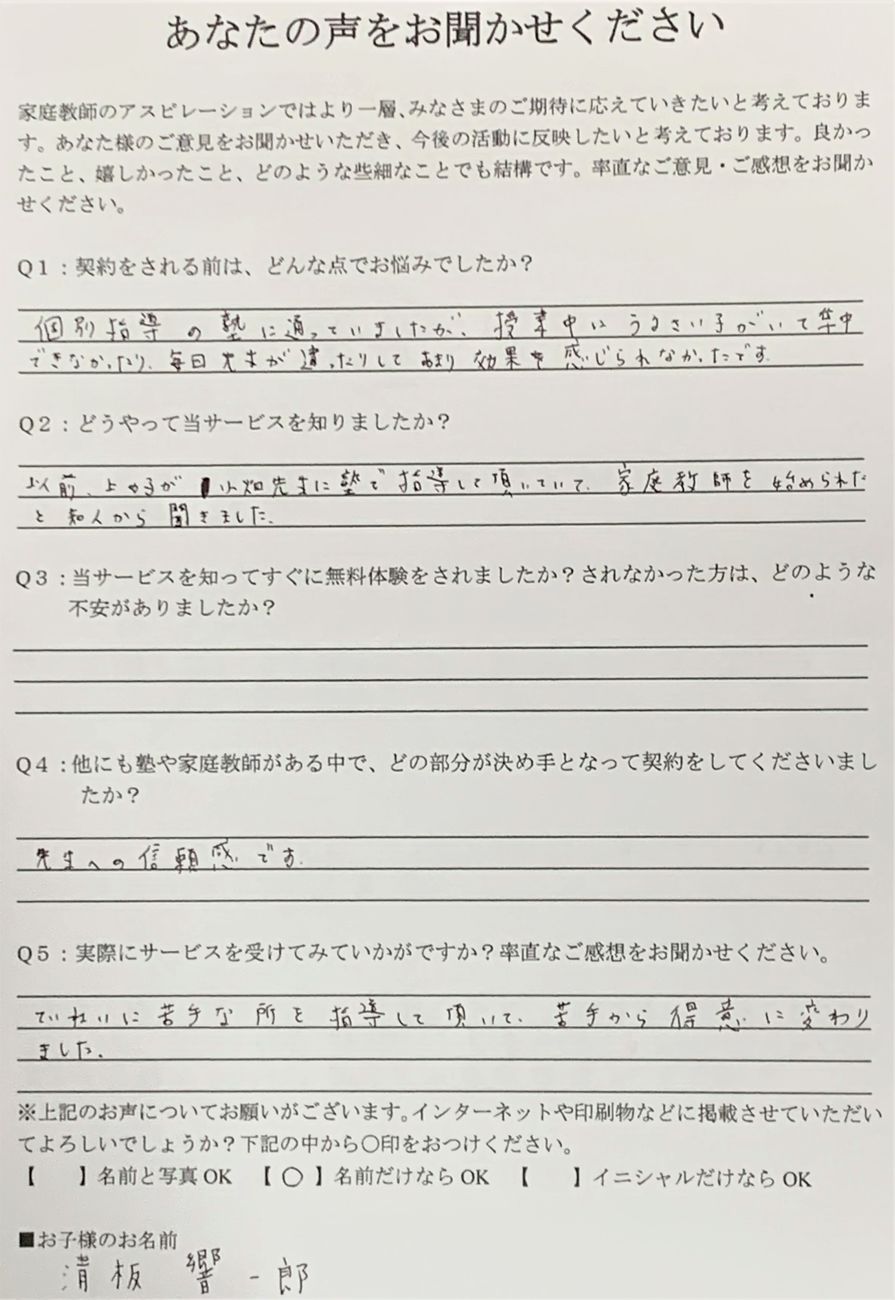 あなたの声をお聞かせください
家庭教師のアスピレーションではより一層、みなさまのご期待に応えていきたいと考えておりま
す。あなた様のご意見をお聞かせいただき、今後の活動に反映したいと考えております。良かっ
たこと、嬉しかったこと、どのような些細なことでも結構です。率直なご意見・ご感想をお聞か
せください。
Q1：契約をされる前は、どんな点でお悩みでしたか？
個別指導の塾に通っていましたが、授業中にうるさい子がいて集中
できなかったり、毎日先生が違ったりしてあまり効果を感じられなかったです。
Q2：どうやって当サービスを知りましたか？
以前、上の子が小畑先生に塾で指導して頂いていて、家庭教師を始められた
と知人から聞きました。
Q3：当サービスを知ってすぐに無料体験をされましたか？されなかった方は、どのような
不安がありましたか？
Q4：他にも塾や家庭教師がある中で、どの部分が決め手となって契約をしてくださいまし
たか？
先生への信頼感です。
Q5：実際にサービスを受けてみていかがですか？率直なご感想をお聞かせください。
ていねいに苦手な所を指導して頂いて、苦手から得意に変わり
ました。
※上記のお声についてお願いがございます。インターネットや印刷物などに掲載させていただい
てよろしいでしょうか？下記の中から〇印をおつけください。
【　】名前と写真 OK 【〇】名前だけなら OK 【　】イニシャルだけなら OK
■お子様のお名前
清板 響一郎